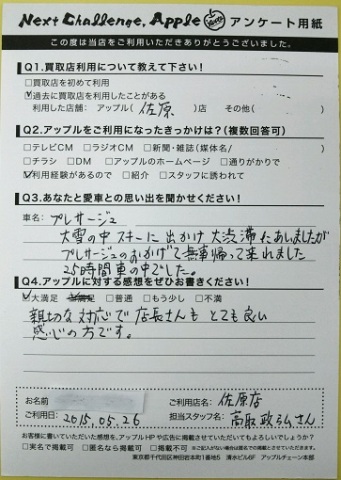 Next Challenge, Apple アンケート用紙
この度は当店をご利用いただきありがとうございました。
Q1.買取店利用について教えて下さい!
□買取店を初めて利用
☑過去に買取店を利用したことがある
利用した店舗: アップル(佐原)店 その他( )
Q2.アップルをご利用になったきっかけは?(複数回答可)
□テレビCM □ラジオCM □新聞・雑誌(媒体名/ )
□チラシ □DM □アップルのホームページ □通りがかりで
☑利用経験があるので □紹介 □スタッフに誘われて
Q3.あなたと愛車との思い出を聞かせください!
車名: プレサージュ
大雪の中スキーに出かけ大渋滞にあいましたが
プレサージュのおかげで無事帰って来れました
25時間車の中でした。
Q4.アップルに対する感想をぜひお書きください!
☑大満足 □普通 □もう少し □不満
親切な対応で店長さんもとても良い
感じの方です。
お名前
ご利用店名: 佐原店
ご利用日: 2015.05.26
担当スタッフ名: 高取政弘さん
お客様に書いていただいた感想を、アップルHPや広告に掲載させていただいてもよろしいでしょうか?
□実名で掲載可 □匿名なら掲載可 □掲載不可
東京都千代田区神田岩本町1番地5 清水ビル6F アップルチェーン本部